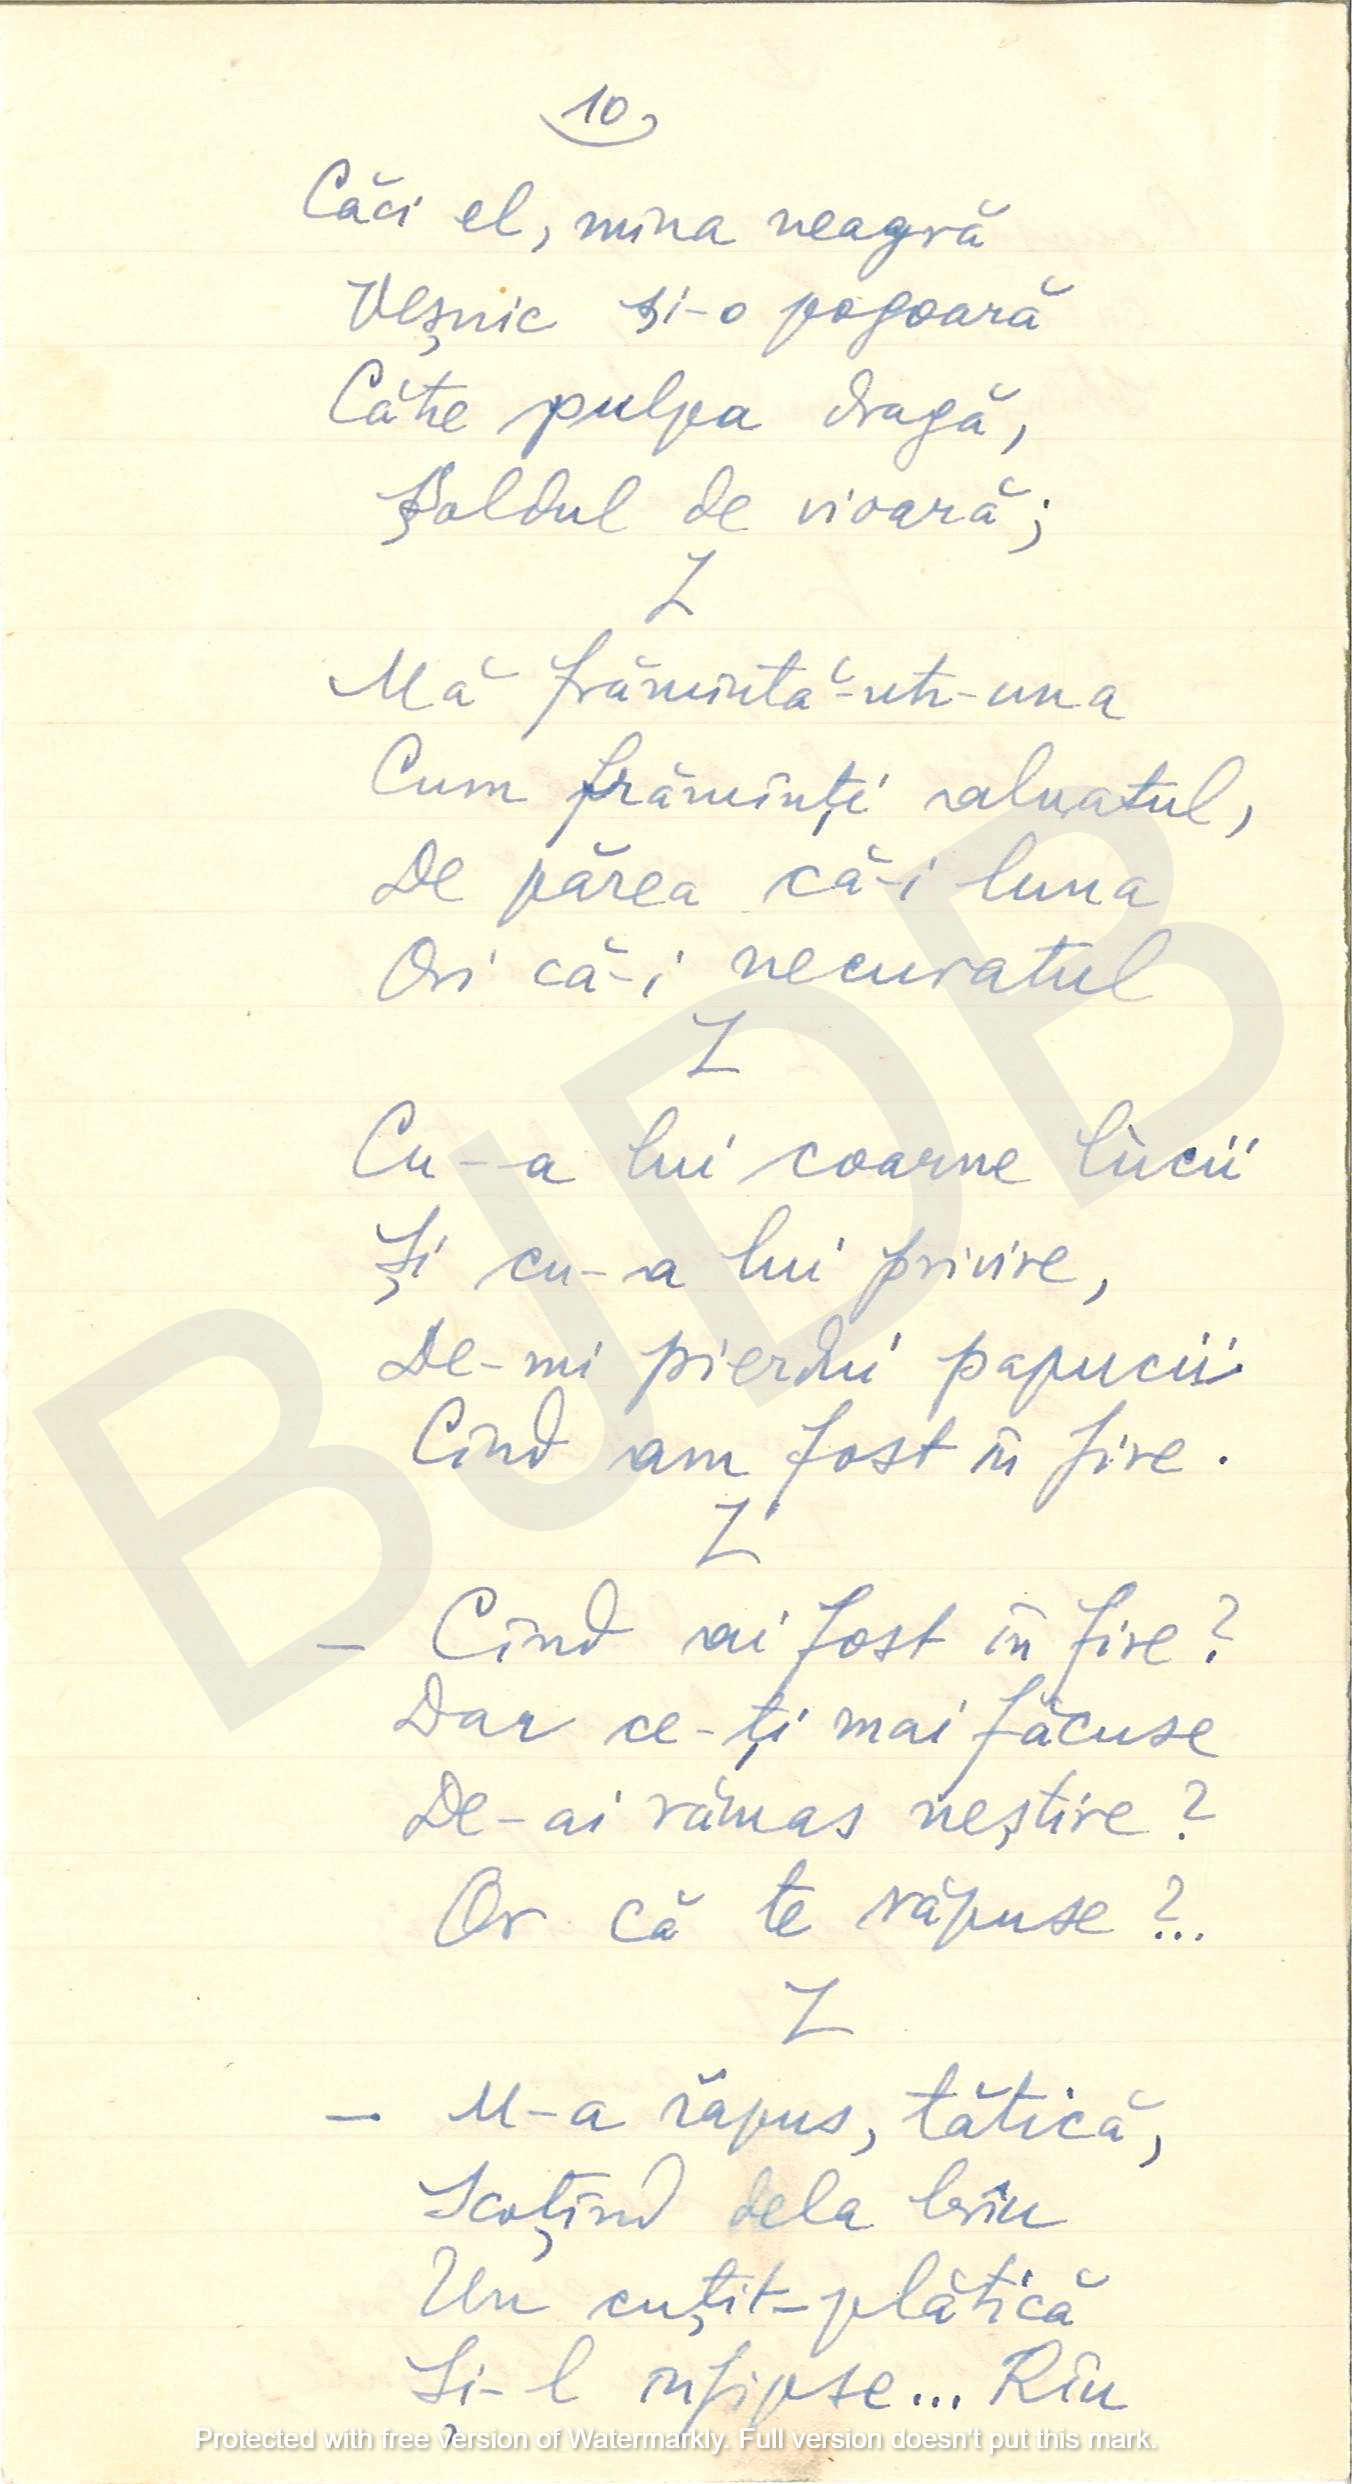 10
Căci el, mîna neagră
Veșnic și-o pogoară
Către pulpa dragă,
Șoldul de vioară;
Z
Mă frămîntă-ntr-una
Cum frămînți aluatul,
De părea că-i luna
Ori că-i necuratul
Z
Cu-a lui coarne lucii
Și cu-a lui privire,
De-mi pierdui papucii
Cînd am fost în fire.
Z
— Cînd ai fost în fire?
Dar ce-ți mai făcuse
De-ai rămas neștire?
Or că te răpuse?...
Z
— M-a răpus, tătică,
Scoțînd dela brîu
Un cuțit-plătică
Și-l înfipse... Rîu
BJDB
Protected with free version of Watermarkly. Full version doesn't put this mark.